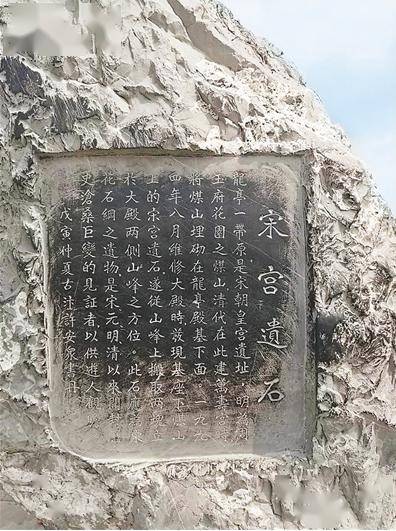 宋宮遺石
龍亭一帶原是宋朝皇宮遺址，明為周
王府花園之煤山清代在此建萬壽
將煤山埋砌在龍亭殿基下面。一九
四年八月維修大殿時發現基座下煤山
上的宋宮遺石，遂從山峰上搬取兩塊立
於大殿兩側山峰之方位。此石
花石綱之遺物是宋元明清以來開封
史滄桑巨變的見証者，以供遊人觀
戊寅仲夏古汴許安泉書丹